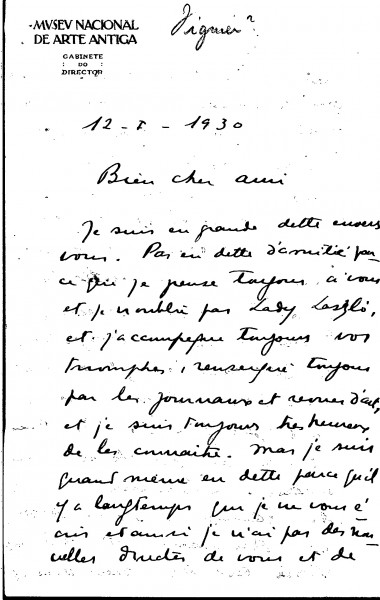 MVSEV NACIONAL
DE ARTE ANTIGA
GABINETE
DO
DIRECTOR
12-I-1930
Bien cher ami
Je suis en grande dette envers
vous. Pas en dette d'amitié par
ce que je pense toujours à vous
et je n'oublie pas Lady László,
et j'accompagne toujours vos
triomphes, renseigné toujours
par les journaux et revues d'art,
et je suis toujours très heureux
de les connaitre. Mas je suis
quand même en dette parce qu'il
y a longtemps que je ne vous é
cris et aussi je n'ai pas des nou
velles directes de vous et de